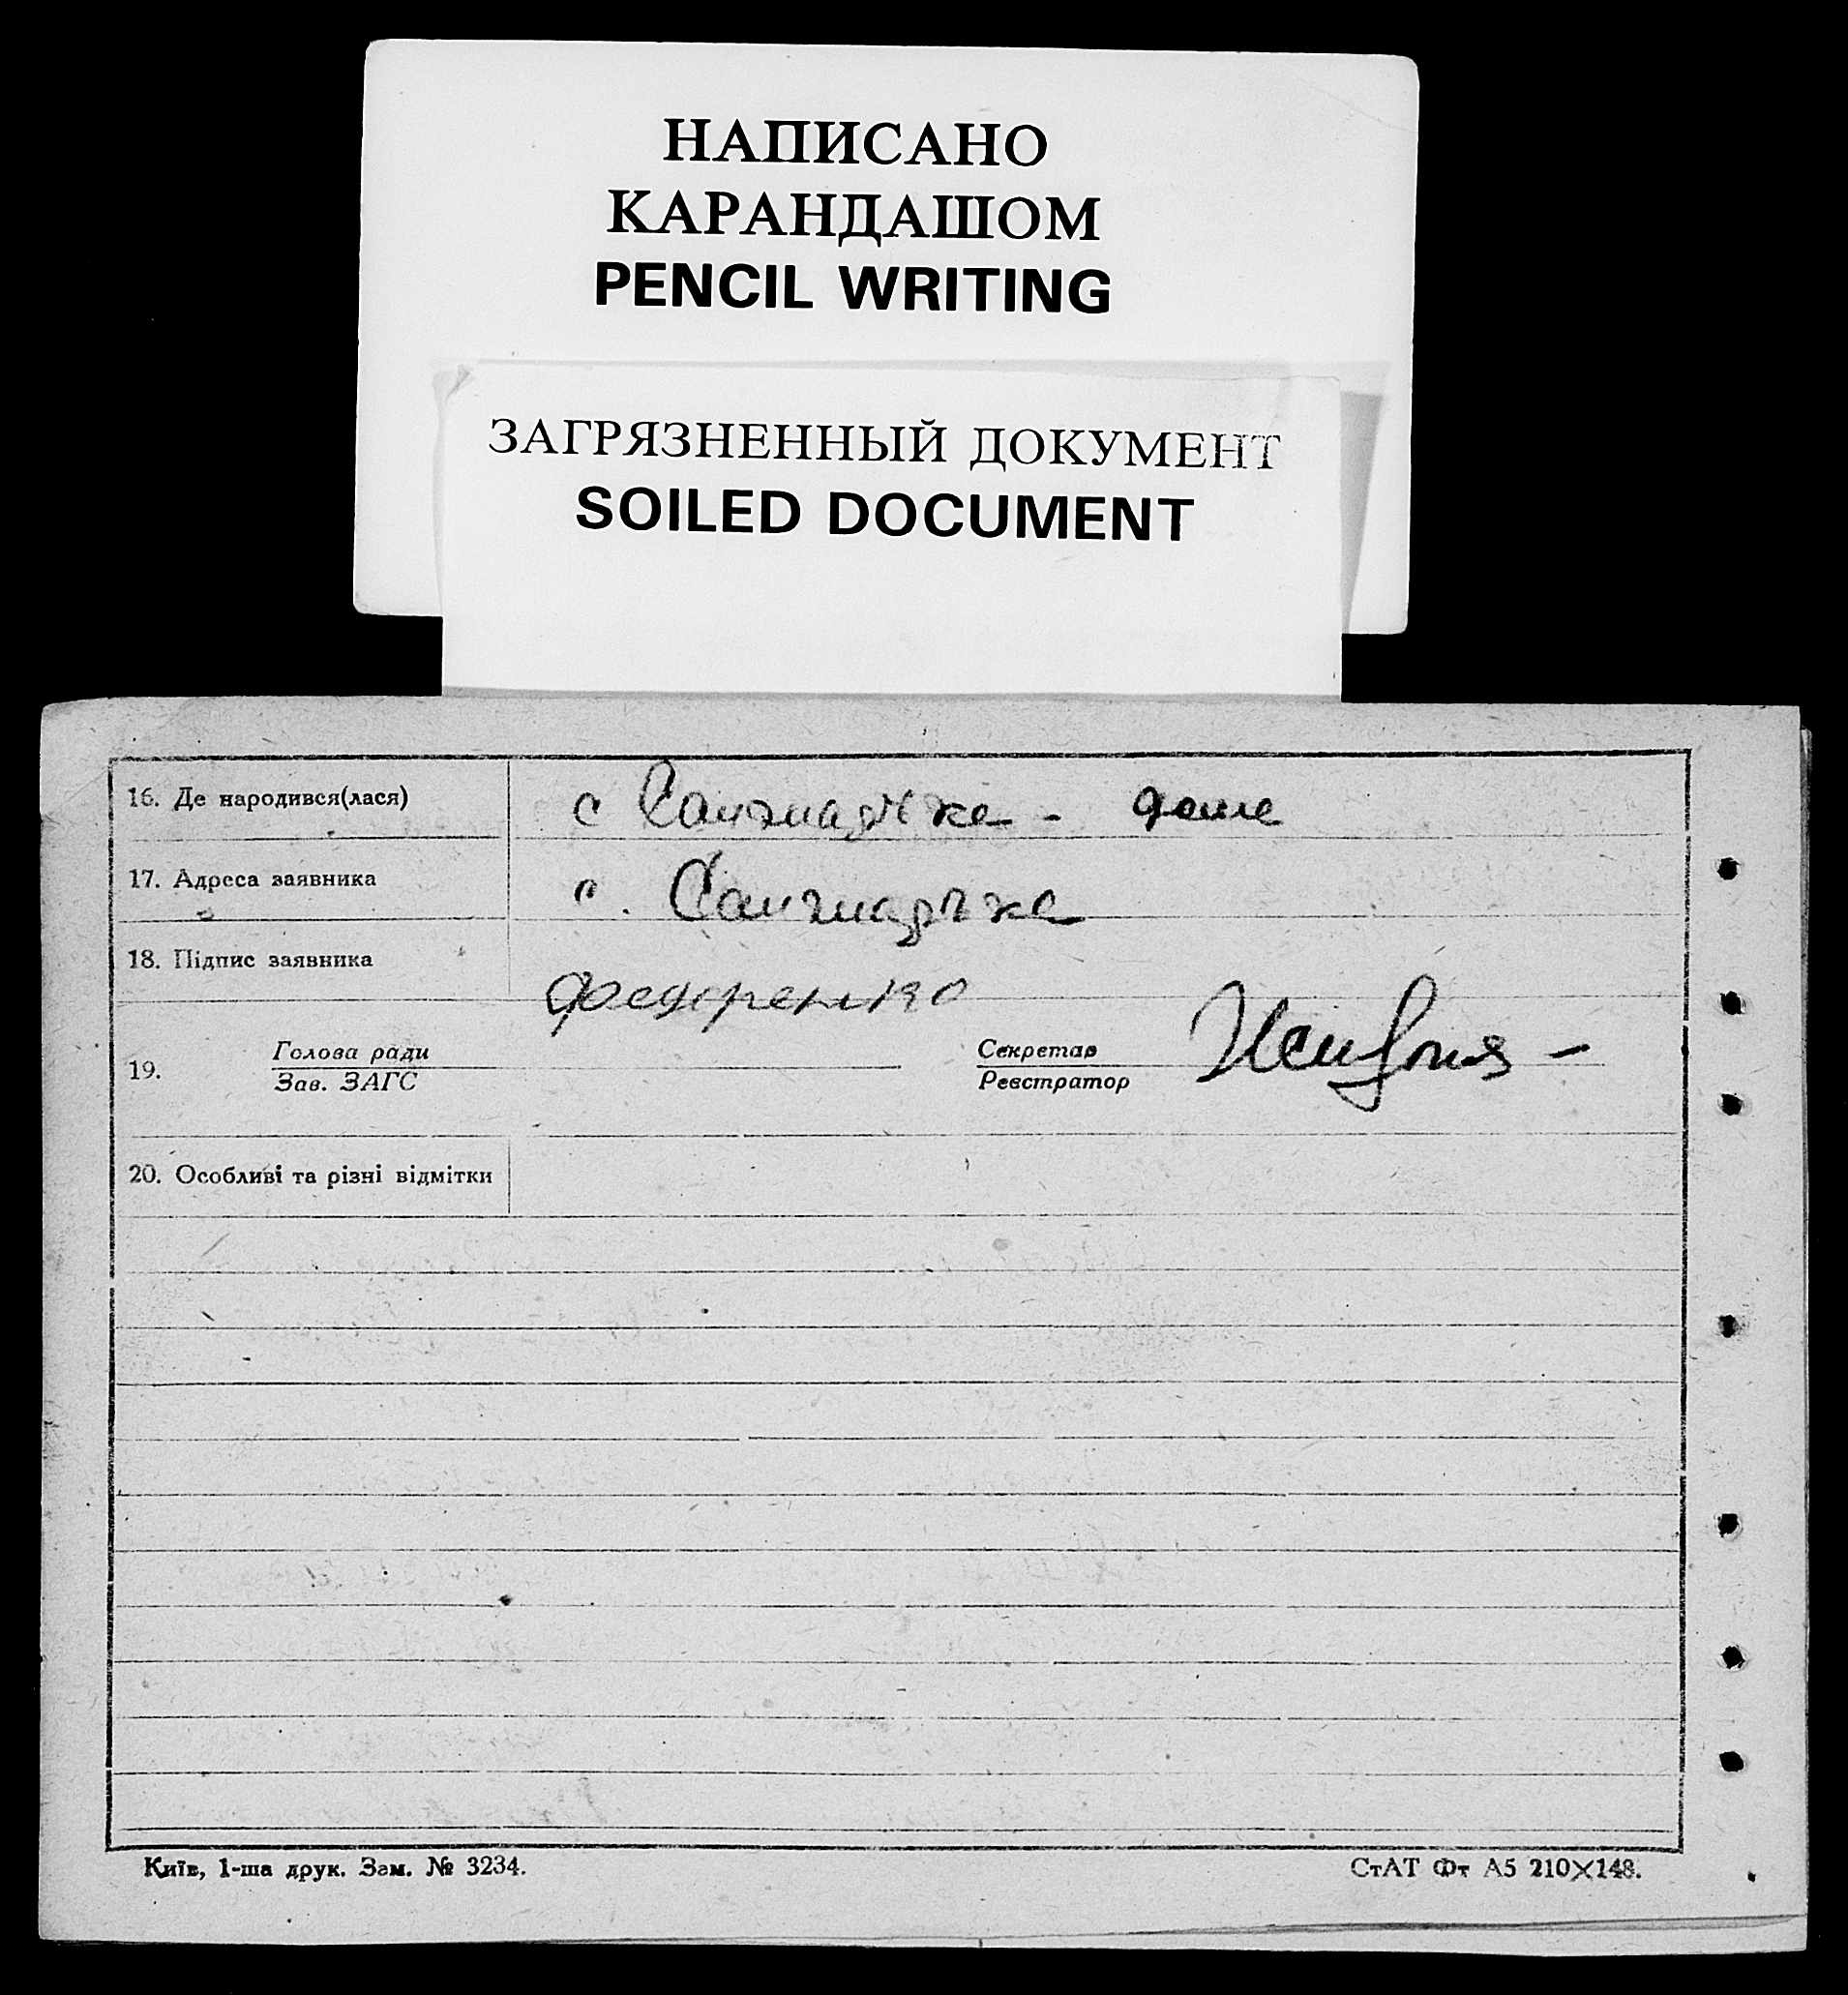 НАПИСАНО
КАРАНДАШОМ
PENCIL WRITING
ЗАГРЯЗНЕННЫЙ ДОКУМЕНТ
SOILED DOCUMENT
16. Де народився(лася) с
17. Адреса заявника с.
18. Підпис заявника Федоренко
19. Голова ради Секретар
Зав. ЗАГС Реєстратор
20. Особливі та різні відмітки
Київ, 1-ша друк. Зам. № 3234. СтАТ Фт А5 210×148.